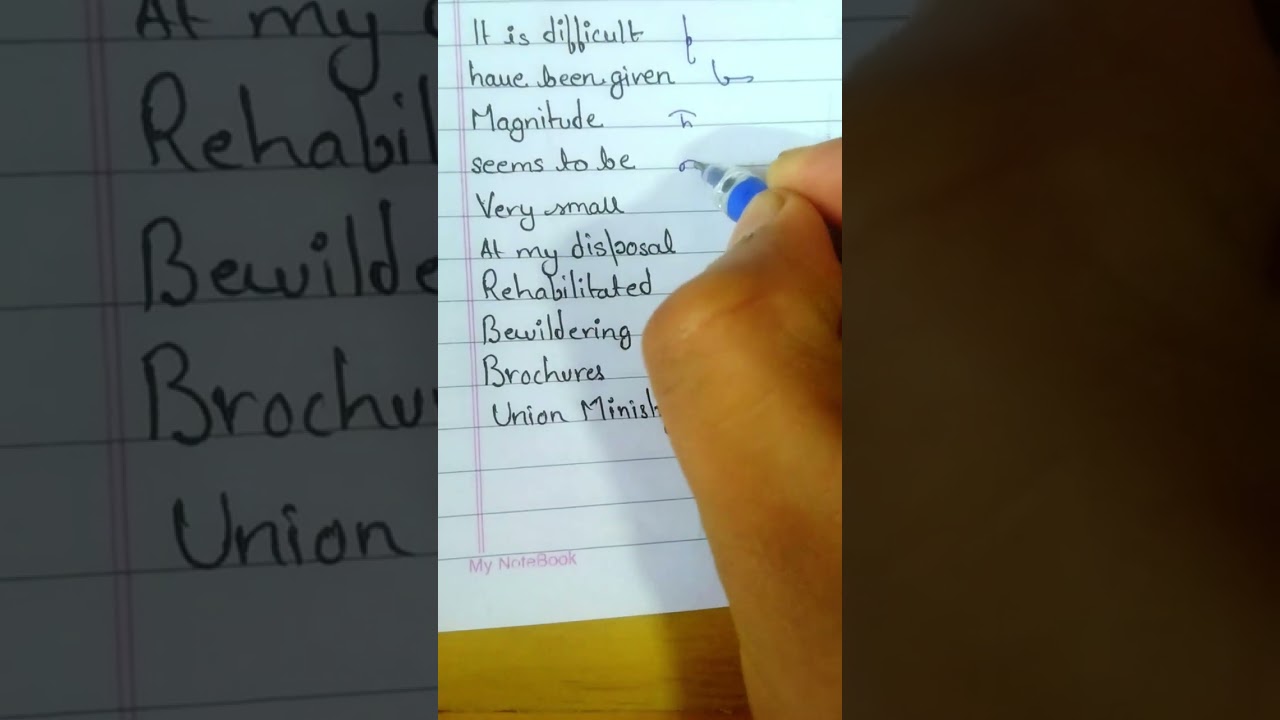 It is difficult
have been given
Magnitude
seems to be
Very small
At my disposal
Rehabilitated
Bewildering
Brochures
Union Minist
My NoteBook